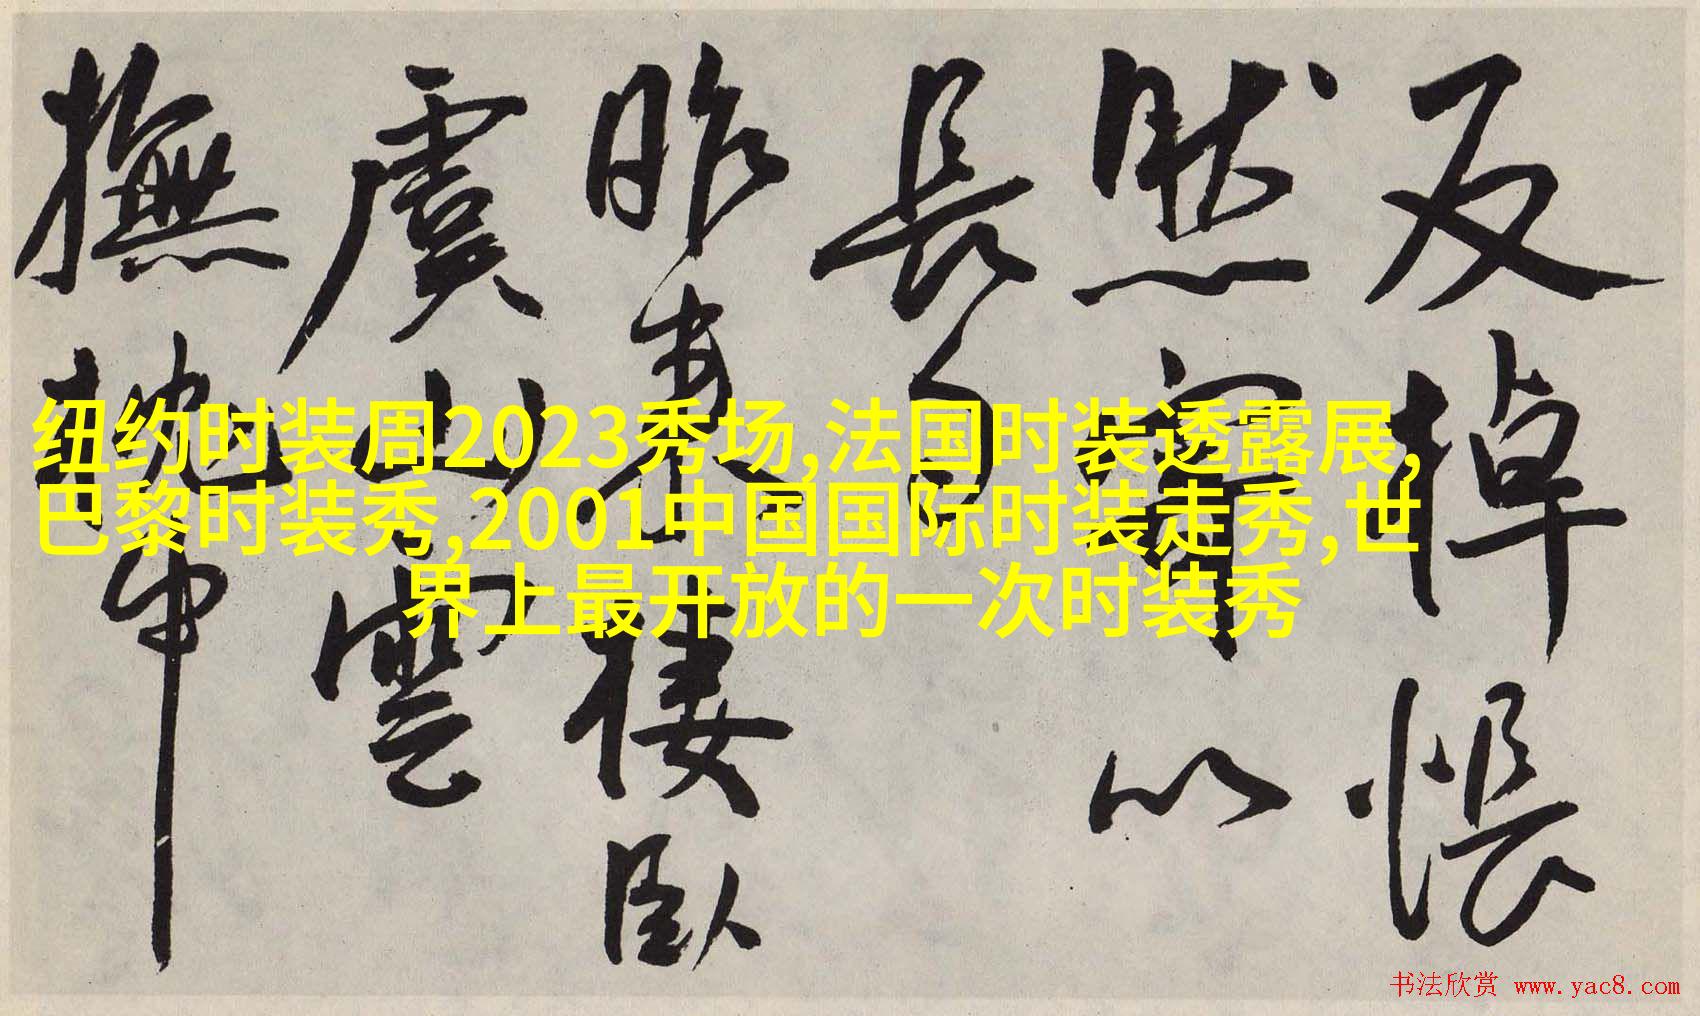 纽约时装周2023秀场,法国时装透露展,
巴黎时装秀,2001中国国际时装走秀,世
界上最开放的一次时装秀
反棹悵
然以
長
昨來棲臥
虞山雲
撫
书法欣赏 www.yac8.com